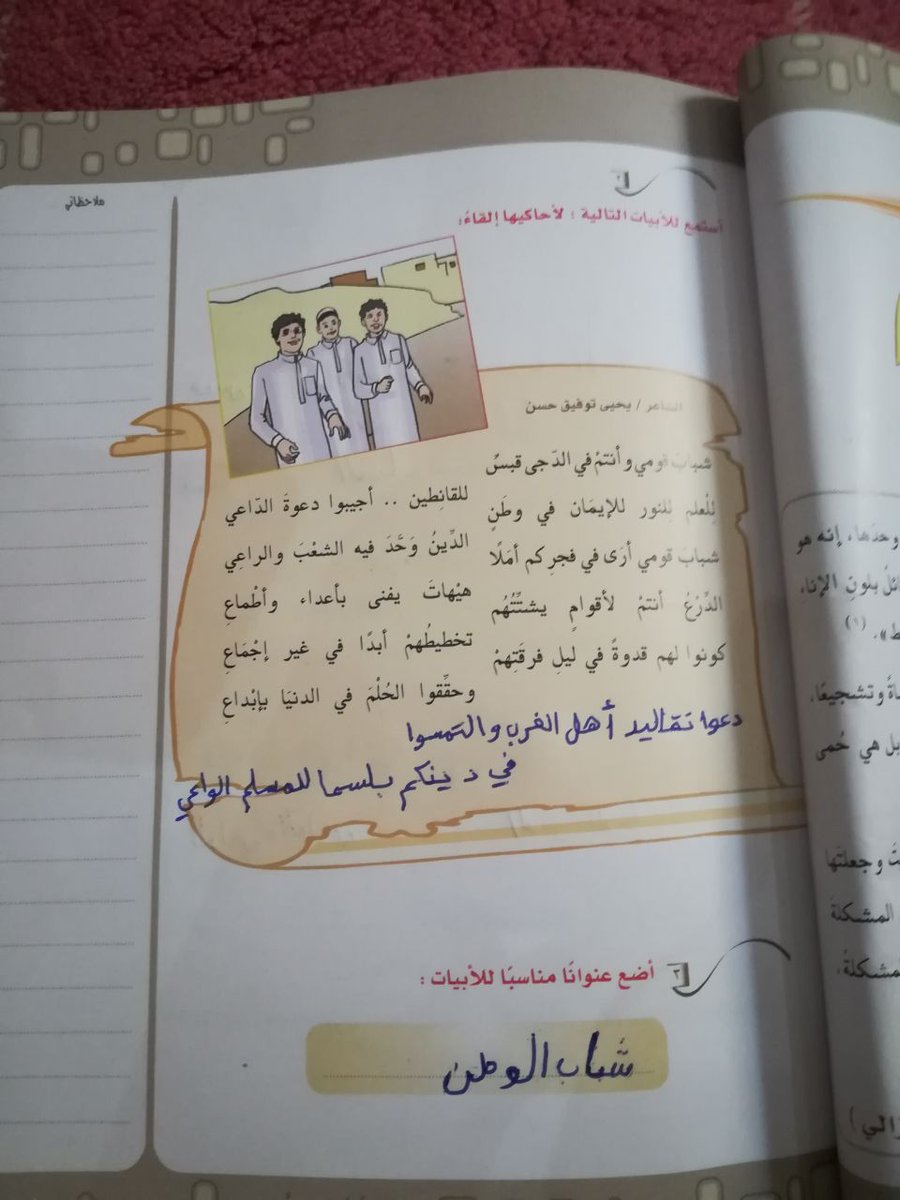 ٢
أستمع للأبيات التالية ؛ لأحاكيها إلقاءً:
ملاحظاتي
الشاعر / يحيى توفيق حسن
شبابَ قومي وأنتمْ في الدّجى قبسٌ
للقانِطين .. أجيبوا دعوةَ الدّاعي
لِلْعلمِ لِلنور للإيمَان في وطَنٍ
الدِّينُ وَحَّدَ فيه الشعْبَ والراعِي
شبابَ قومي أرَى في فجرِكم أمَلًا
هيْهاتَ يفنى بأعداء وأطْماعِ
الدِّرْعُ أنتمْ لأقوامٍ يشتِّتُهُم
تخطيطُهمْ أبدًا في غير إجْمَاعِ
كونوا لهم قدوةً في ليلِ فرقَتِهِمْ
وحقِّقوا الحُلْمَ في الدنيَا بإبْداعِ
دعوا تقاليد أهل الغرب والتمسوا
في دينكم بلسما للمسلم الواعي
٣
أضع عنوانًا مناسبًا للأبيات :
شباب الوطن
وحدَها، إنه هو
ئلُ بلونِ الإناءِ
ط». (١)
ةً وتشجيعًا،
بل هي حُمى
تَ وجعلتَها
المشكلةَ
لمشكلةُ.
زالي )